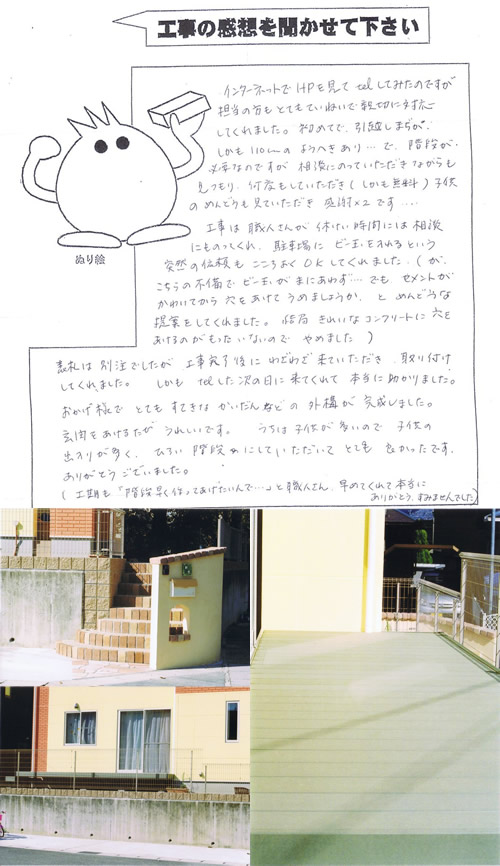 工事の感想を聞かせて下さい
インターネットでHPを見てtelしてみたのですが
担当の方もとてもていねいで親切に対応
してくれました。初めてで、引越しまぢか、
しかも110cmのようへきあり…で、階段が
必要なのですが 相談にのっていただきながらも
見つもり、何度もしていただき(しかも無料)子供
のめんどうも見ていただき 感謝×2です….
工事は職人さんが休けい時間には相談
にものってくれ、駐車場に ビー玉を入れるという
突然の依頼も こころよくOKしてくれました.(が、
こちらの不備でビー玉がまにあわず…でも セメントが
かわいてから穴をあけてうめましょうか、と めんどうな
提案をしてくれました。結局 きれいなコンクリートに穴を
あけるのがもったいないので やめました )
ぬり絵
表札は 別注でしたが 工事完了後に わざわざ来ていただき、取り付け
してくれました。 しかも telした次の日に来てくれて 本当に助かりました。
おかげ様で とてもすてきな かいだんなどの 外構が完成しました。
玄関をあけるたび うれしいです。 うちは子供が多いので 子供の
出入りが多く、 ひろい 階段にしていただいて とても 良かったです.
ありがとうございました。
(工期も「階段早く作ってあげたいんで…」と職人さん、早めてくれて本当に
ありがとう、すみませんでした)